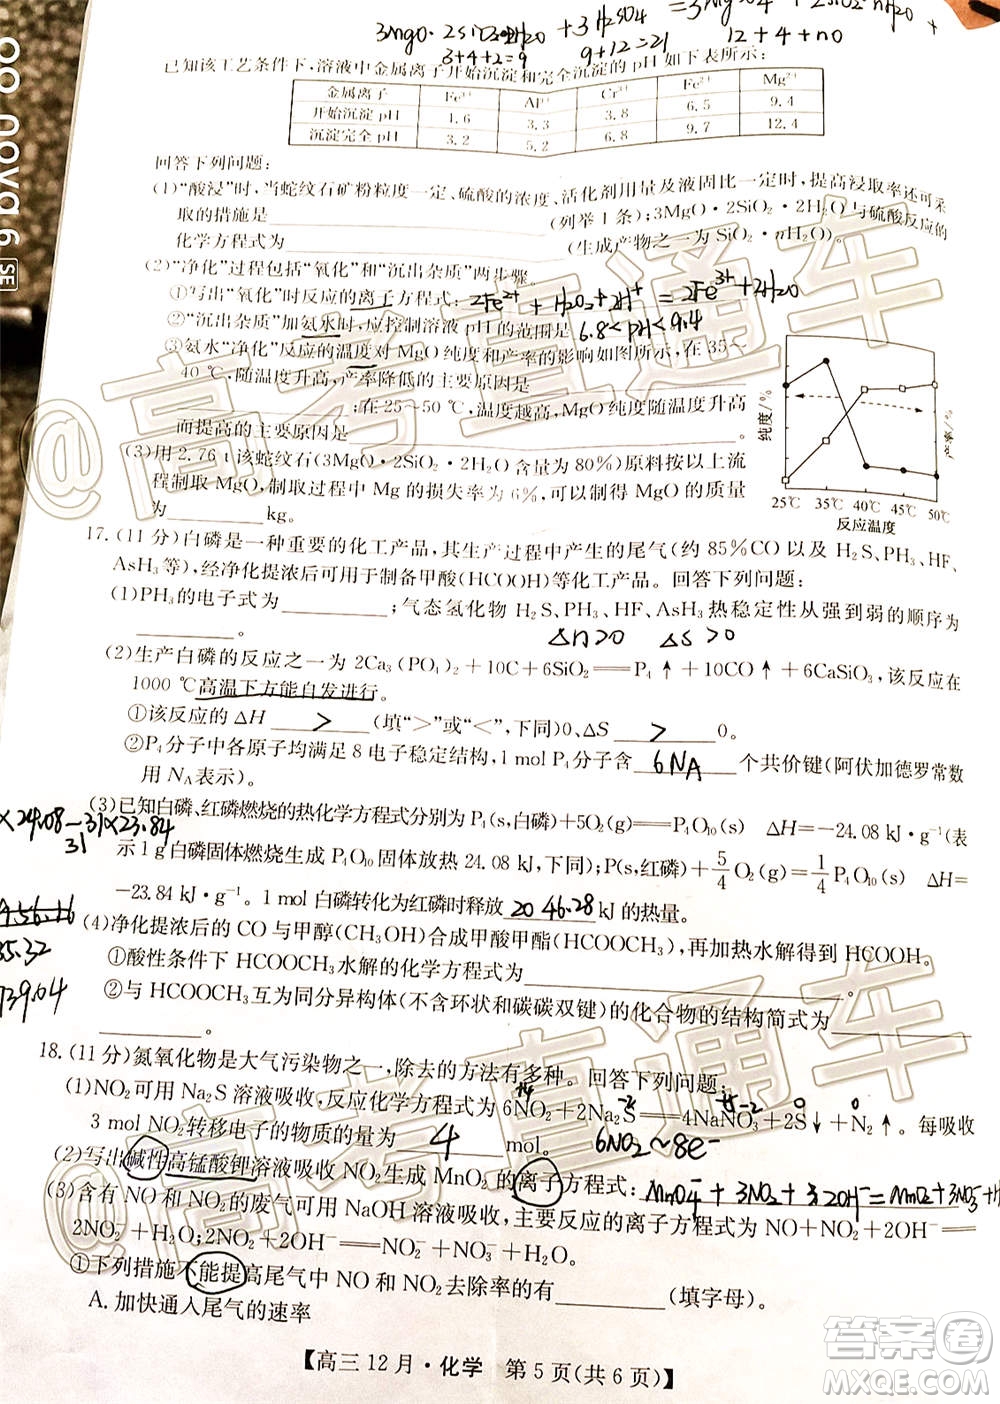 3MgO·2SiO2·2H2O +3H2SO4 =3MgSO4+2SiO2·nH2O +
3+4+2=9 9+12=21 12+4+nO
已知该工艺条件下,溶液中金属离子开始沉淀和完全沉淀的 pH 如下表所示:
金属离子 Fe³⁺ Al³⁺ Cr³⁺ Fe²⁺ Mg²⁺
开始沉淀 pH 1.6 3.3 3.8 6.5 9.4
沉淀完全 pH 3.2 5.2 6.8 9.7 12.4
回答下列问题:
(1)“酸浸”时,当蛇纹石矿粉粒度一定、硫酸的浓度、活化剂用量及液固比一定时,提高浸取率还可采
取的措施是____(列举 1 条);3MgO·2SiO₂·2H₂O 与硫酸反应的
化学方程式为____(生成产物之一为 SiO₂·nH₂O)。
(2)“净化”过程包括“氧化”和“沉出杂质”两步骤。
①写出“氧化”时反应的离子方程式: 2Fe²⁺+H₂O₂+2H⁺=2Fe³⁺+2H₂O
②“沉出杂质”加氨水时,应控制溶液 pH 的范围是 6.8<pH<9.4
③氨水“净化”反应的温度对 MgO 纯度和产率的影响如图所示,在 35~
40 ℃,随温度升高,产率降低的主要原因是____
____;在 25~50 ℃,温度越高,MgO 纯度随温度升高
而提高的主要原因是____
(3)用 2.76 t 该蛇纹石(3MgO·2SiO₂·2H₂O 含量为 80%)原料按上述流
程制取 MgO,整个过程中 Mg 的损失率为 6%,可以制得 MgO 的质量
为____kg。
纯度/%
产率/%
25℃ 35℃ 40℃ 45℃ 50℃
反应温度
17.(11 分)白磷是一种重要的化工产品,其生产过程中产生的尾气(约 85%CO 以及 H₂S、PH₃、HF、
AsH₃等),经净化提浓后可用于制备甲酸(HCOOH)等化工产品。回答下列问题:
(1)PH₃的电子式为____;气态氢化物 H₂S、PH₃、HF、AsH₃热稳定性从强到弱的顺序为
____。
△n>0 △S>0
(2)生产白磷的反应之一为 2Ca₃(PO₄)₂+10C+6SiO₂══P₄↑+10CO↑+6CaSiO₃,该反应在
1000 ℃高温下方能自发进行。
①该反应的 ΔH__>__(填“>”或“<”,下同)0、ΔS__>__0。
②P₄分子中各原子均满足 8 电子稳定结构,1 mol P₄分子含 6NA 个共价键(阿伏加德罗常数
用 Nᴀ表示)。
×24.08-31×23.84
31
(3)已知白磷、红磷燃烧的热化学方程式分别为 P₄(s,白磷)+5O₂(g)══P₄O₁₀(s) ΔH=-24.08 kJ·g⁻¹(表
示 1 g 白磷固体燃烧生成 P₄O₁₀固体放热 24.08 kJ,下同);P(s,红磷)+5/4 O₂(g)══1/4 P₄O₁₀(s) ΔH=
-23.84 kJ·g⁻¹。1 mol 白磷转化为红磷时释放 2046.28 kJ 的热量。
(4)净化提浓后的 CO 与甲醇(CH₃OH)合成甲酸甲酯(HCOOCH₃),再加热水解得到 HCOOH。
35.32
739.04
①酸性条件下 HCOOCH₃水解的化学方程式为____。
②与 HCOOCH₃互为同分异构体(不含环状和碳碳双键)的化合物的结构简式为____
____。
18.(11 分)氮氧化物是大气污染物之一,除去的方法有多种。回答下列问题:
+4 -2 +5 -2 0 0
(1)NO₂可用 Na₂S 溶液吸收,反应化学方程式为 6NO₂+2Na₂S══4NaNO₃+2S↓+N₂。每吸收
3 mol NO₂转移电子的物质的量为 4 mol。 6NO₂~8e⁻
(2)写出碱性高锰酸钾溶液吸收 NO₂生成 MnO₂的离子方程式: MnO₄⁻+3NO₂+32OH⁻=MnO₂+3NO₃⁻+H
(3)含有 NO 和 NO₂的废气可用 NaOH 溶液吸收,主要反应的离子方程式为 NO+NO₂+2OH⁻══
2NO₂⁻+H₂O;2NO₂+2OH⁻══NO₂⁻+NO₃⁻+H₂O。
①下列措施不能提高尾气中 NO 和 NO₂去除率的有____(填字母)。
A.加快通入尾气的速率
【高三 12 月·化学 第 5 页(共 6 页)】
nova 6 SE
@高考直通车
@高考直通车
答案卷
MXQE.COM